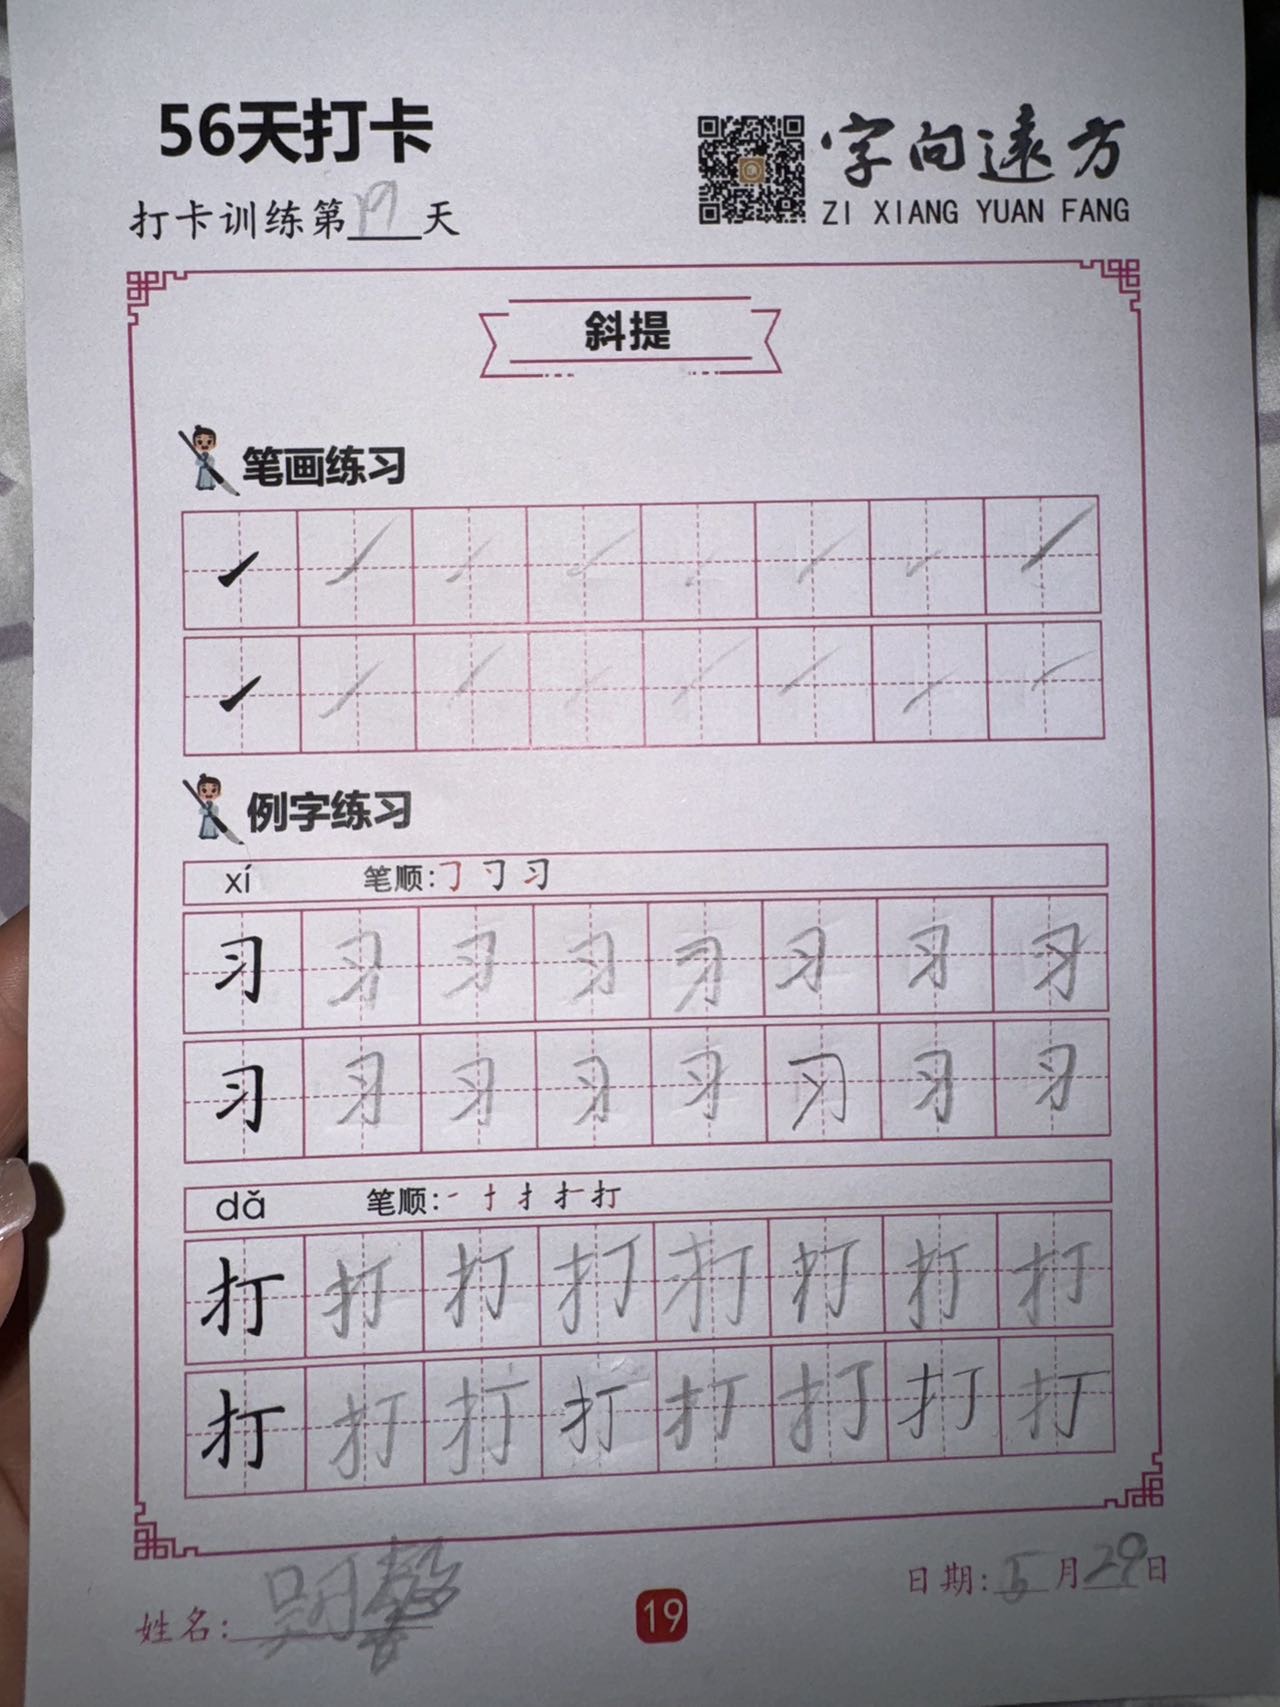 56天打卡
字向遠方
ZI XIANG YUAN FANG
打卡训练第19天
斜提
笔画练习
例字练习
xí 笔顺:㇆ 刁 习
习 习 习 习 习 习 习 习
习 习 习 习 习 习 习 习
dǎ 笔顺:一 十 扌 扩 打
打 打 打 打 打 打 打 打
打 打 打 打 打 打 打 打
日期:5月29日
姓名:
19